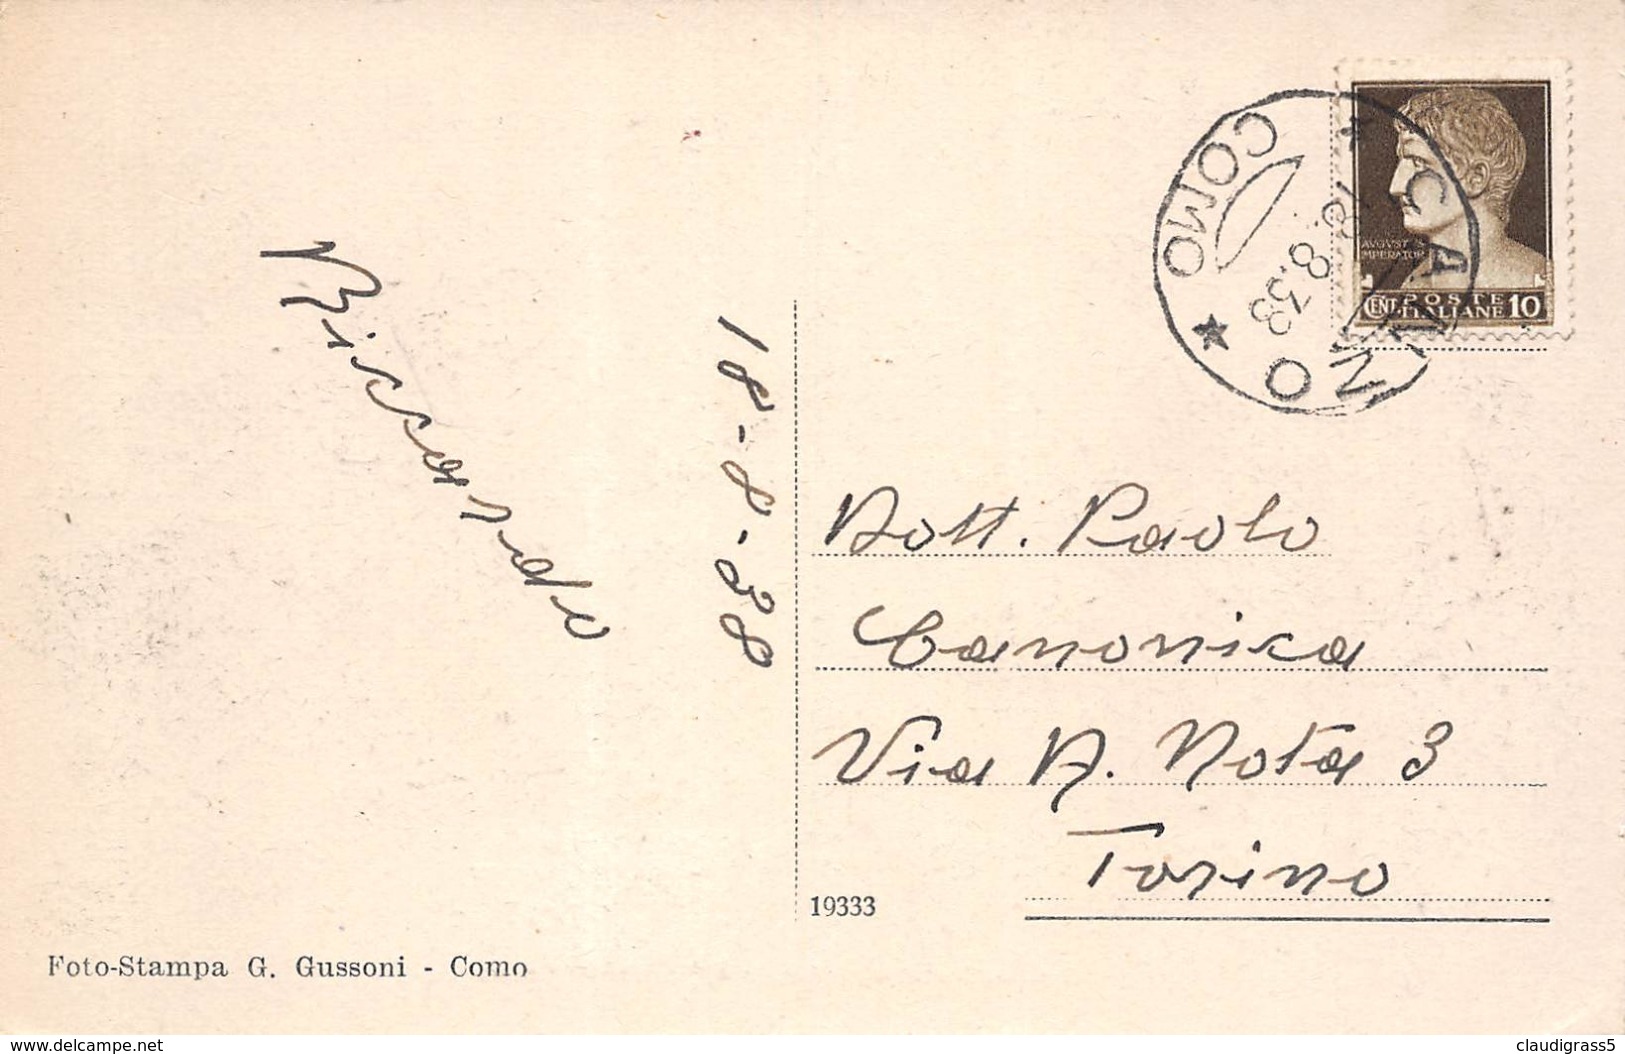 Riccardo
18-8-38
Foto-Stampa G. Gussoni - Como
19333
COMO
18.8.38
AVGVST
IMPERATOR
CENT. POSTE ITALIANE 10
Dott. Paolo
Canonica
Via A. Nota 3
Torino
www.delcampe.net
claudigrass5